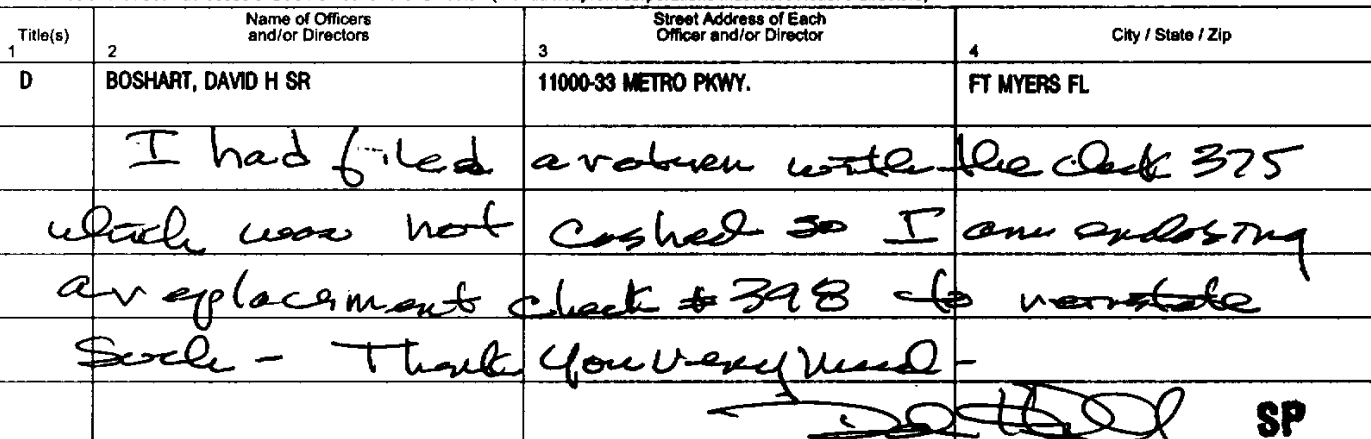 Title(s)
1
Name of Officers
and/or Directors
2
Street Address of Each
Officer and/or Director
3
City / State / Zip
4
D BOSHART, DAVID H SR 11000-33 METRO PKWY. FT MYERS FL
I had filed a return with the check 375
which was not cashed so I am enclosing
a replacement check # 398 to reinstate
Such - Thank you very much -
SP